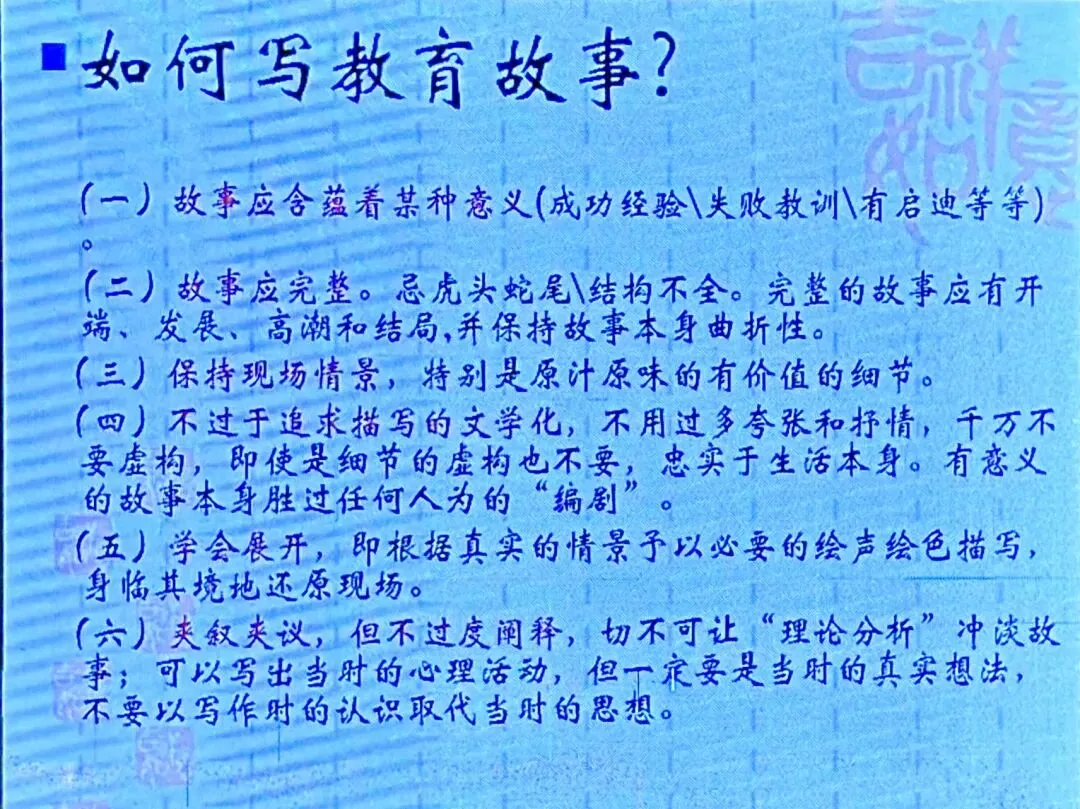 如何写教育故事?
吉祥如意
(一)故事应含蕴着某种意义(成功经验\失败教训\有启迪等等)
。
(二)故事应完整。忌虎头蛇尾\结构不全。完整的故事应有开
端、发展、高潮和结局,并保持故事本身曲折性。
(三)保持现场情景，特别是原汁原味的有价值的细节。
(四)不过于追求描写的文学化，不用过多夸张和抒情，千万不
要虚构，即使是细节的虚构也不要，忠实于生活本身。有意义
的故事本身胜过任何人为的“编剧”。
(五)学会展开，即根据真实的情景予以必要的绘声绘色描写，
身临其境地还原现场。
(六)夹叙夹议，但不过度阐释，切不可让“理论分析”冲淡故
事；可以写出当时的心理活动，但一定要是当时的真实想法，
不要以写作时的认识取代当时的思想。